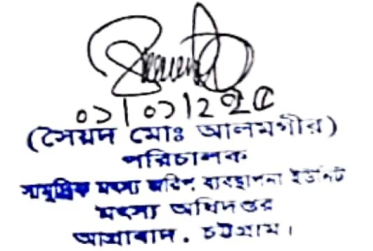 ০১/০১/২০২৫
(সৈয়দ মোঃ আলমগীর)
পরিচালক
সামুদ্রিক মৎস্য জরিপ ব্যবস্থাপনা ইউনিট
মৎস্য অধিদপ্তর
আগ্রাবাদ, চট্টগ্রাম।